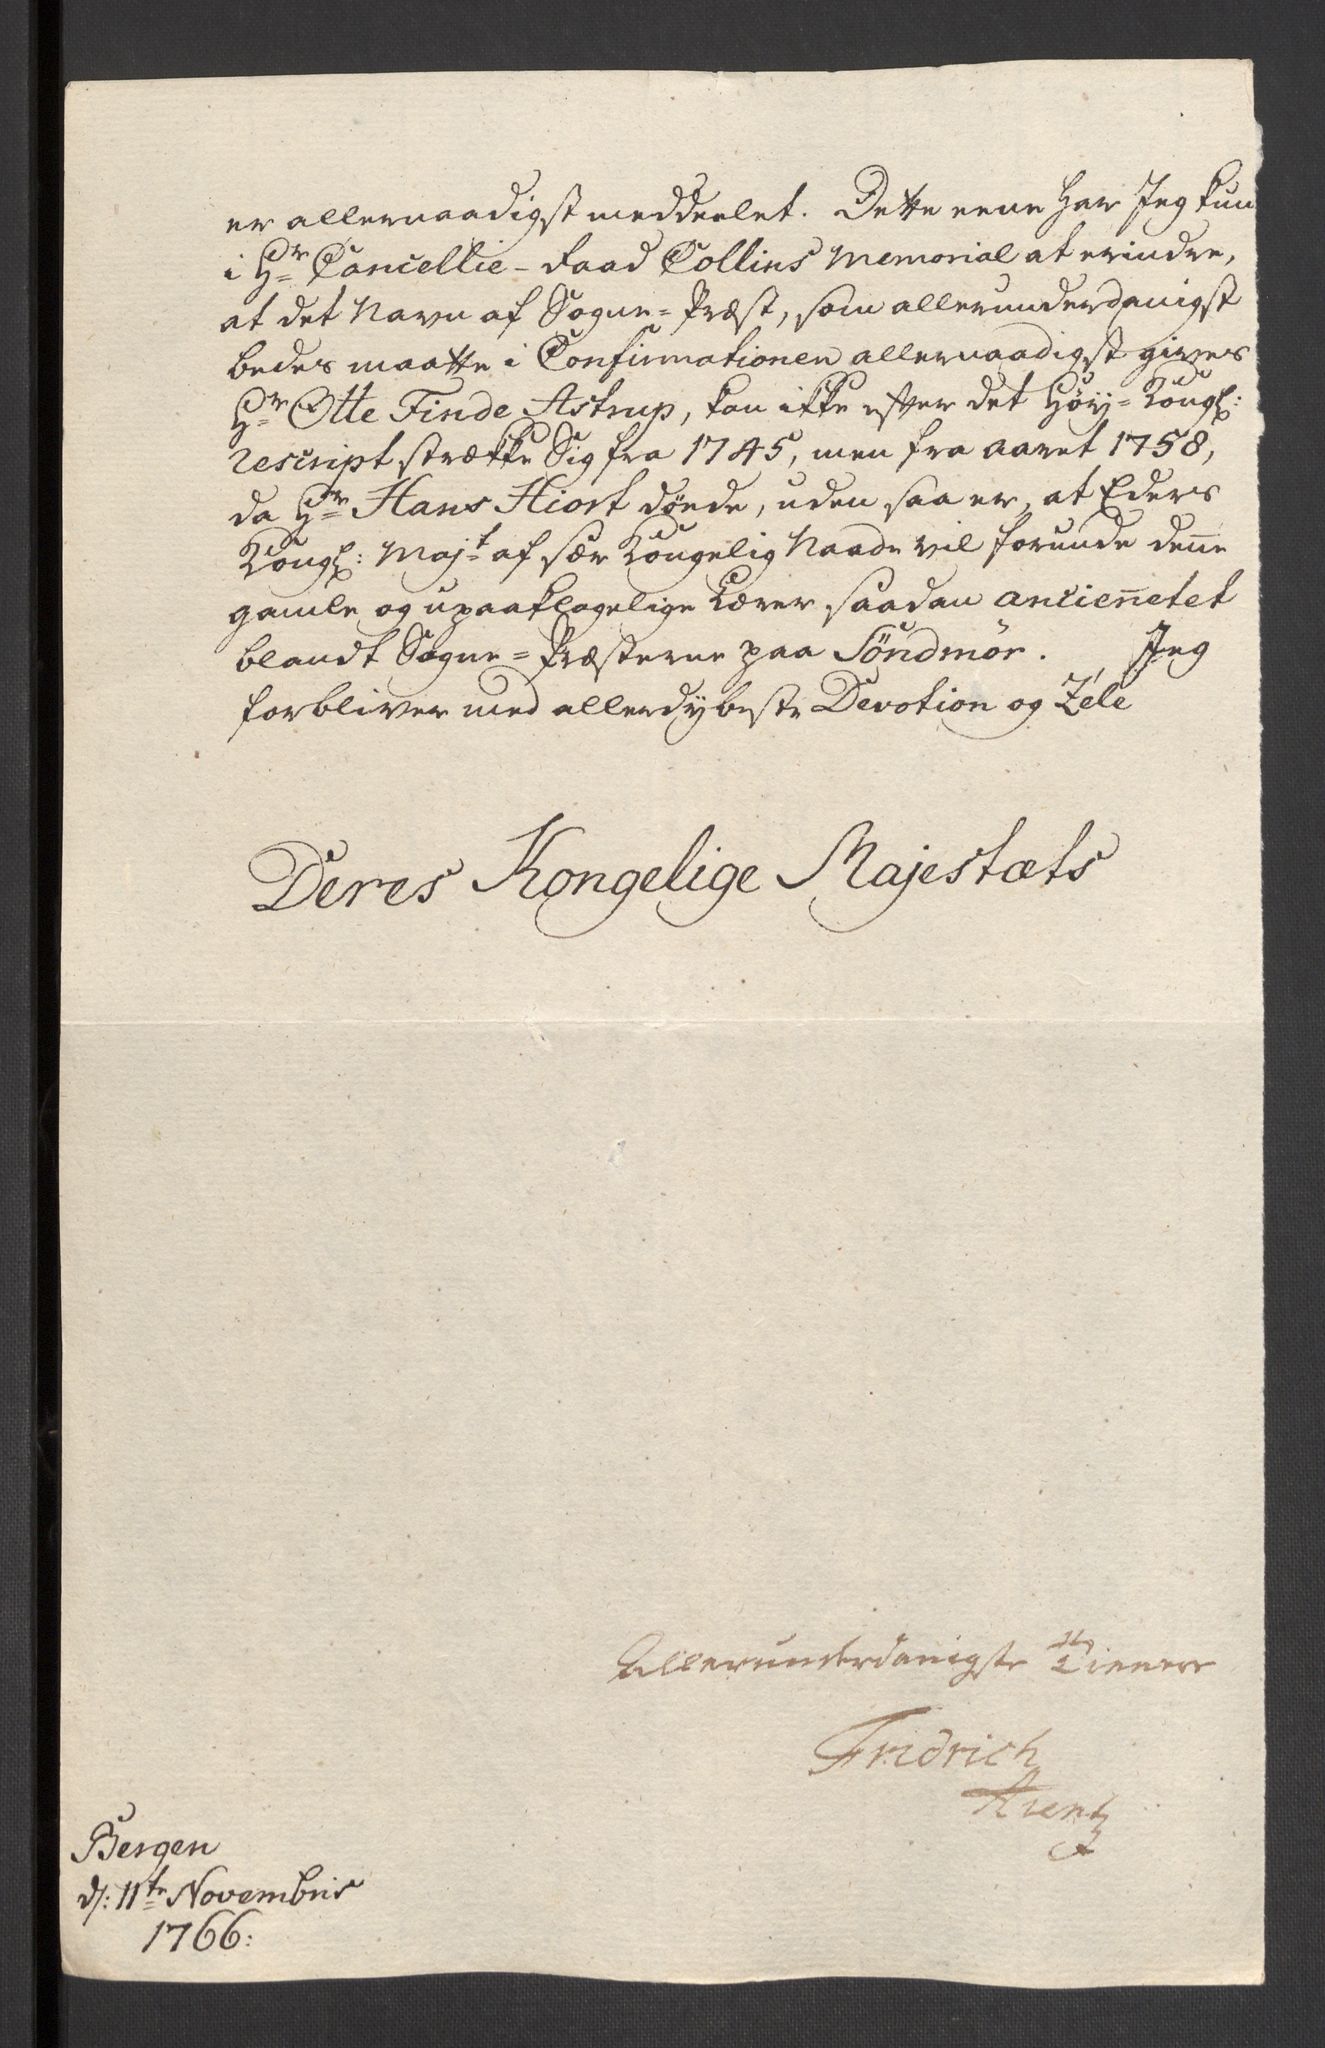 er allernaadigst meddeelet. Dette eene har Jeg kun
i Hr Cancellie-Raad Collins Memorial at erindre,
at det Navn af Sogne-Præst, som allerunderdanigst
bedes maatte i Confirmationen allernaadigst gives
Hr Otte Finde Astrup, kan ikke efter det Høy-Kongl:
rescript strække Sig fra 1745, men fra aaret 1758,
da Hr Hans Hiort døede, uden saa er, at Eders
Kongl: Majt af sær Kongelig Naade vil forunde deñe
gamle og upaaklagelige Lærer saadan ancieñetet
blandt Sogne-Præsterne paa Söndmör. Jeg
forbliver med allerdybeste Devotion og Zéle
Deres Kongelige Majestæts
Allerunderdanigste Tienere
Fridrich
Arentz
Bergen
d: 11te Novembris
1766: